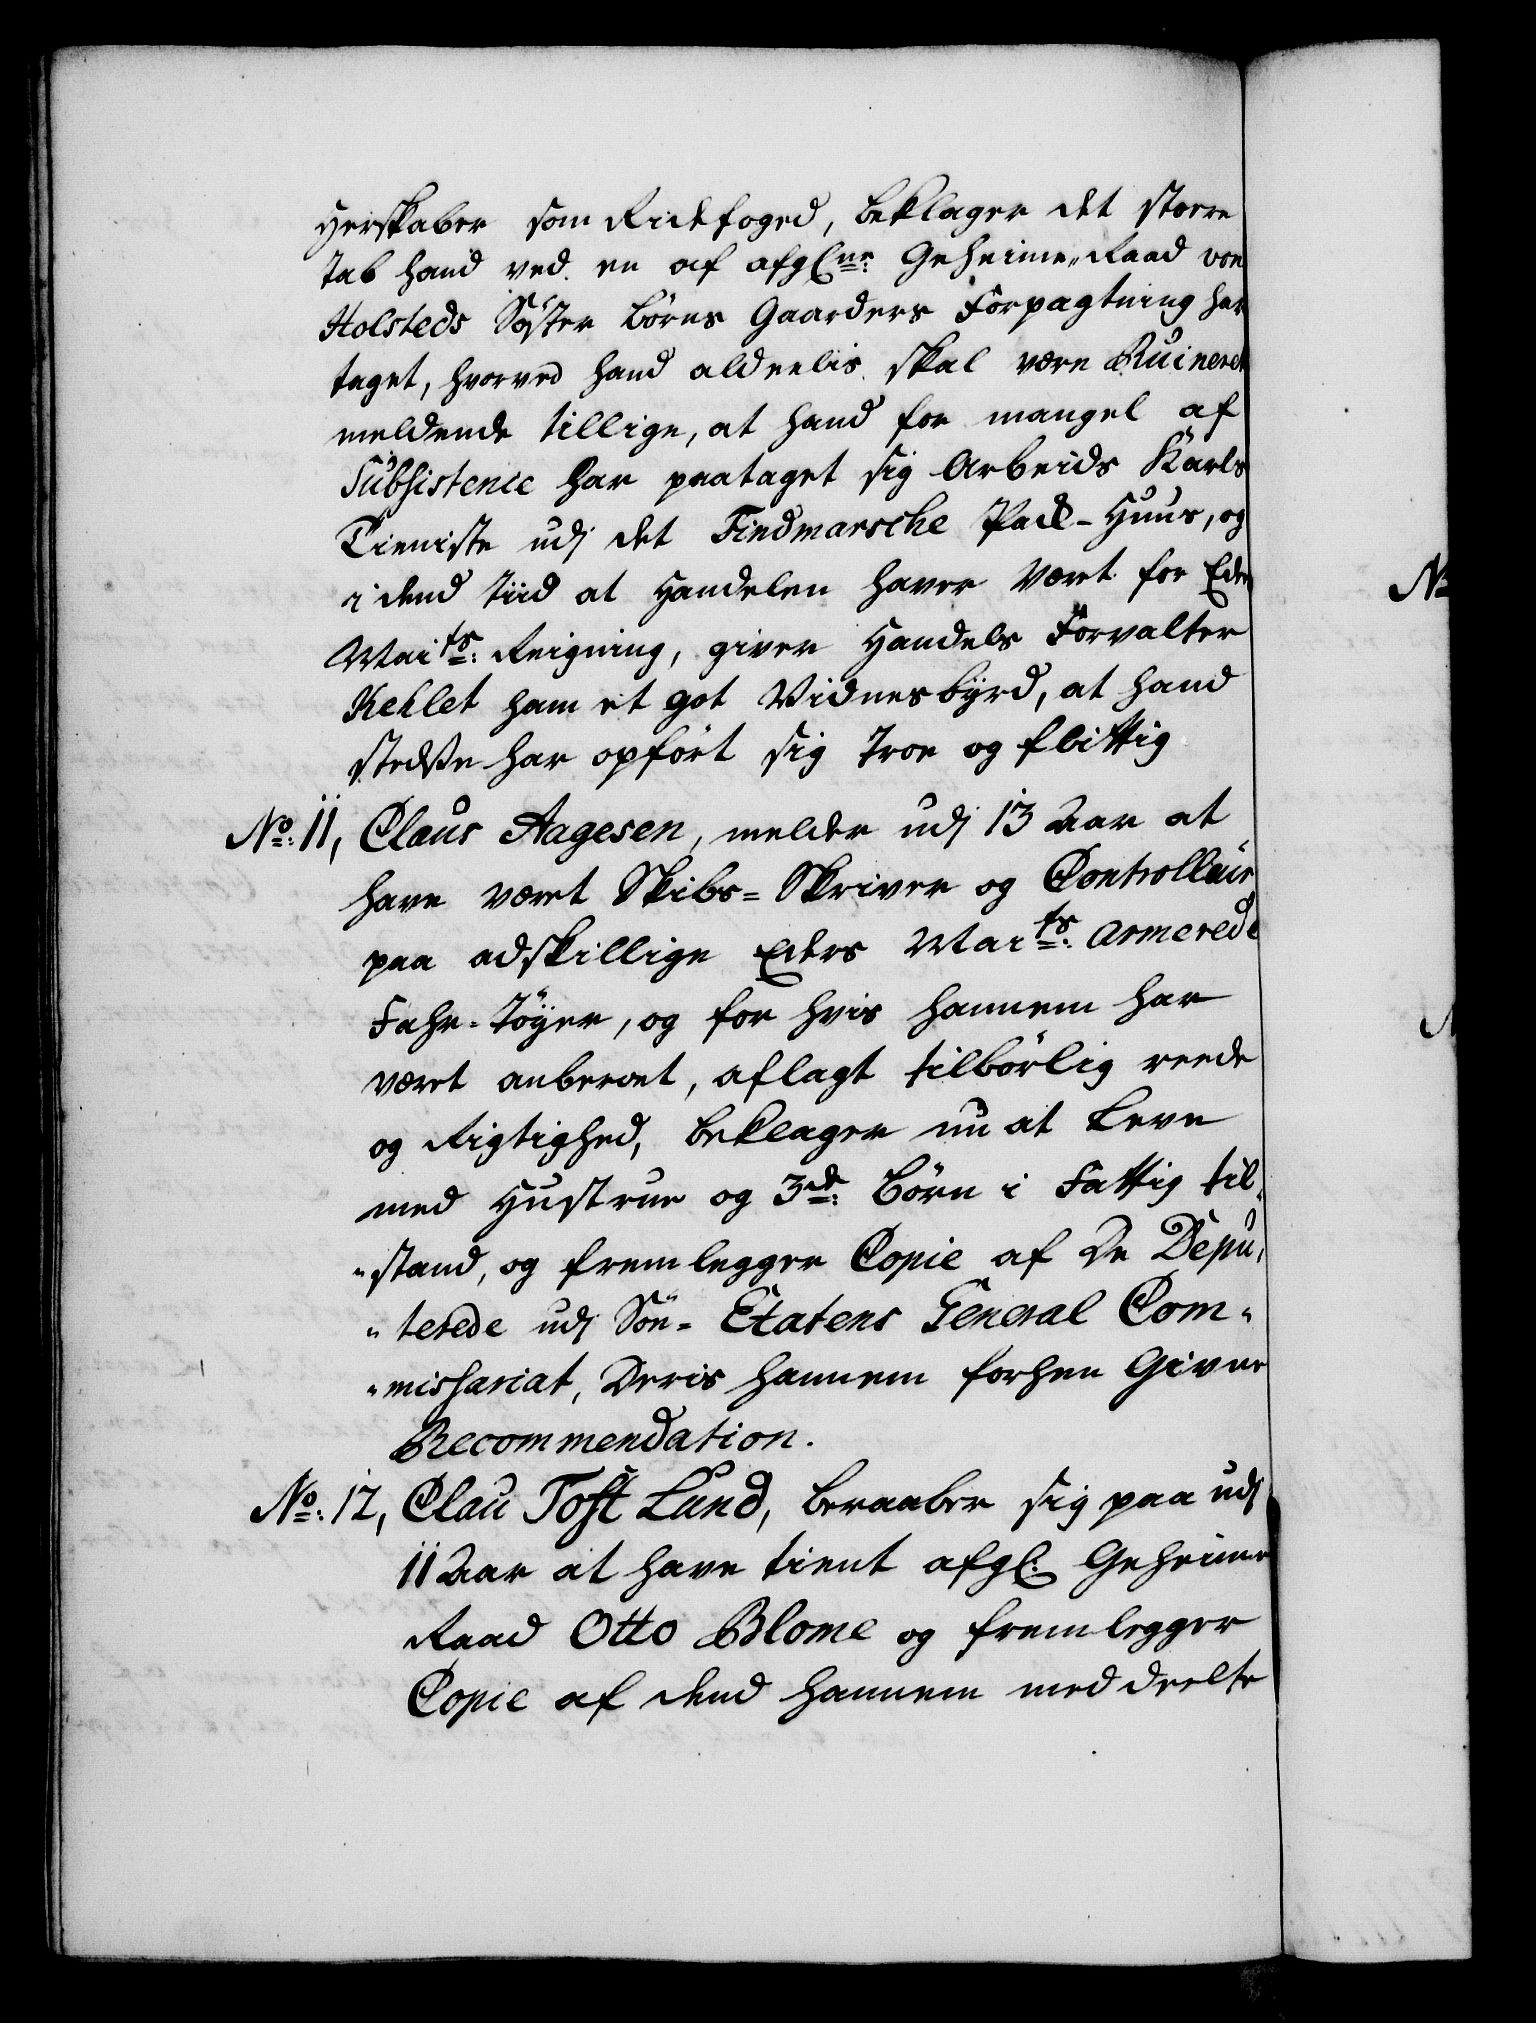 Herskaber som Ridefoged, beklager det storre
Tab hand ved en af afgl:ne: Geheime-Raad von
Holsteds Söster Børns Gaarders Forpagtning har
taget, hvorved hand aldeelis skal være Ruineret
meldende tillige, at hand for mangel af
Subsistence har paataget sig Arbeids Karls
Tieniste udj det Findmarsche Pack-Huus, og
i dend Tiid at Handelen haver været for Eders
Maits: Reigning, giver Handels Forvalter
Kehlet ham et got Vidnesbyrd, at hand
stedse har opført sig Troe og flittig
No: 11, Claus Aagesen, melder udj 13 Aar at
have været Skibs-Skriver og Controlleur
paa adskillige Eders Maits: armerede
Fahr-Töyer, og for hvis hannem har
været anbetroet, aflagt tilbørlig reede
og Rigtighed, beklager nu at leve
med Hustrue og 3de: Børn i Fattig til-
-stand, og fremlegger Copie af De Depu-
-terede udj Söe-Etatens General Com-
-missariat, Deris hannem forhen Givne
Recommendation.
No: 12, Clau Toft Lund, beraaber sig paa udj
11 Aar at have tient afgl: Geheime
Raad Otto Blome og fremlegger
Copie af dend hannem meddeelte
No
N